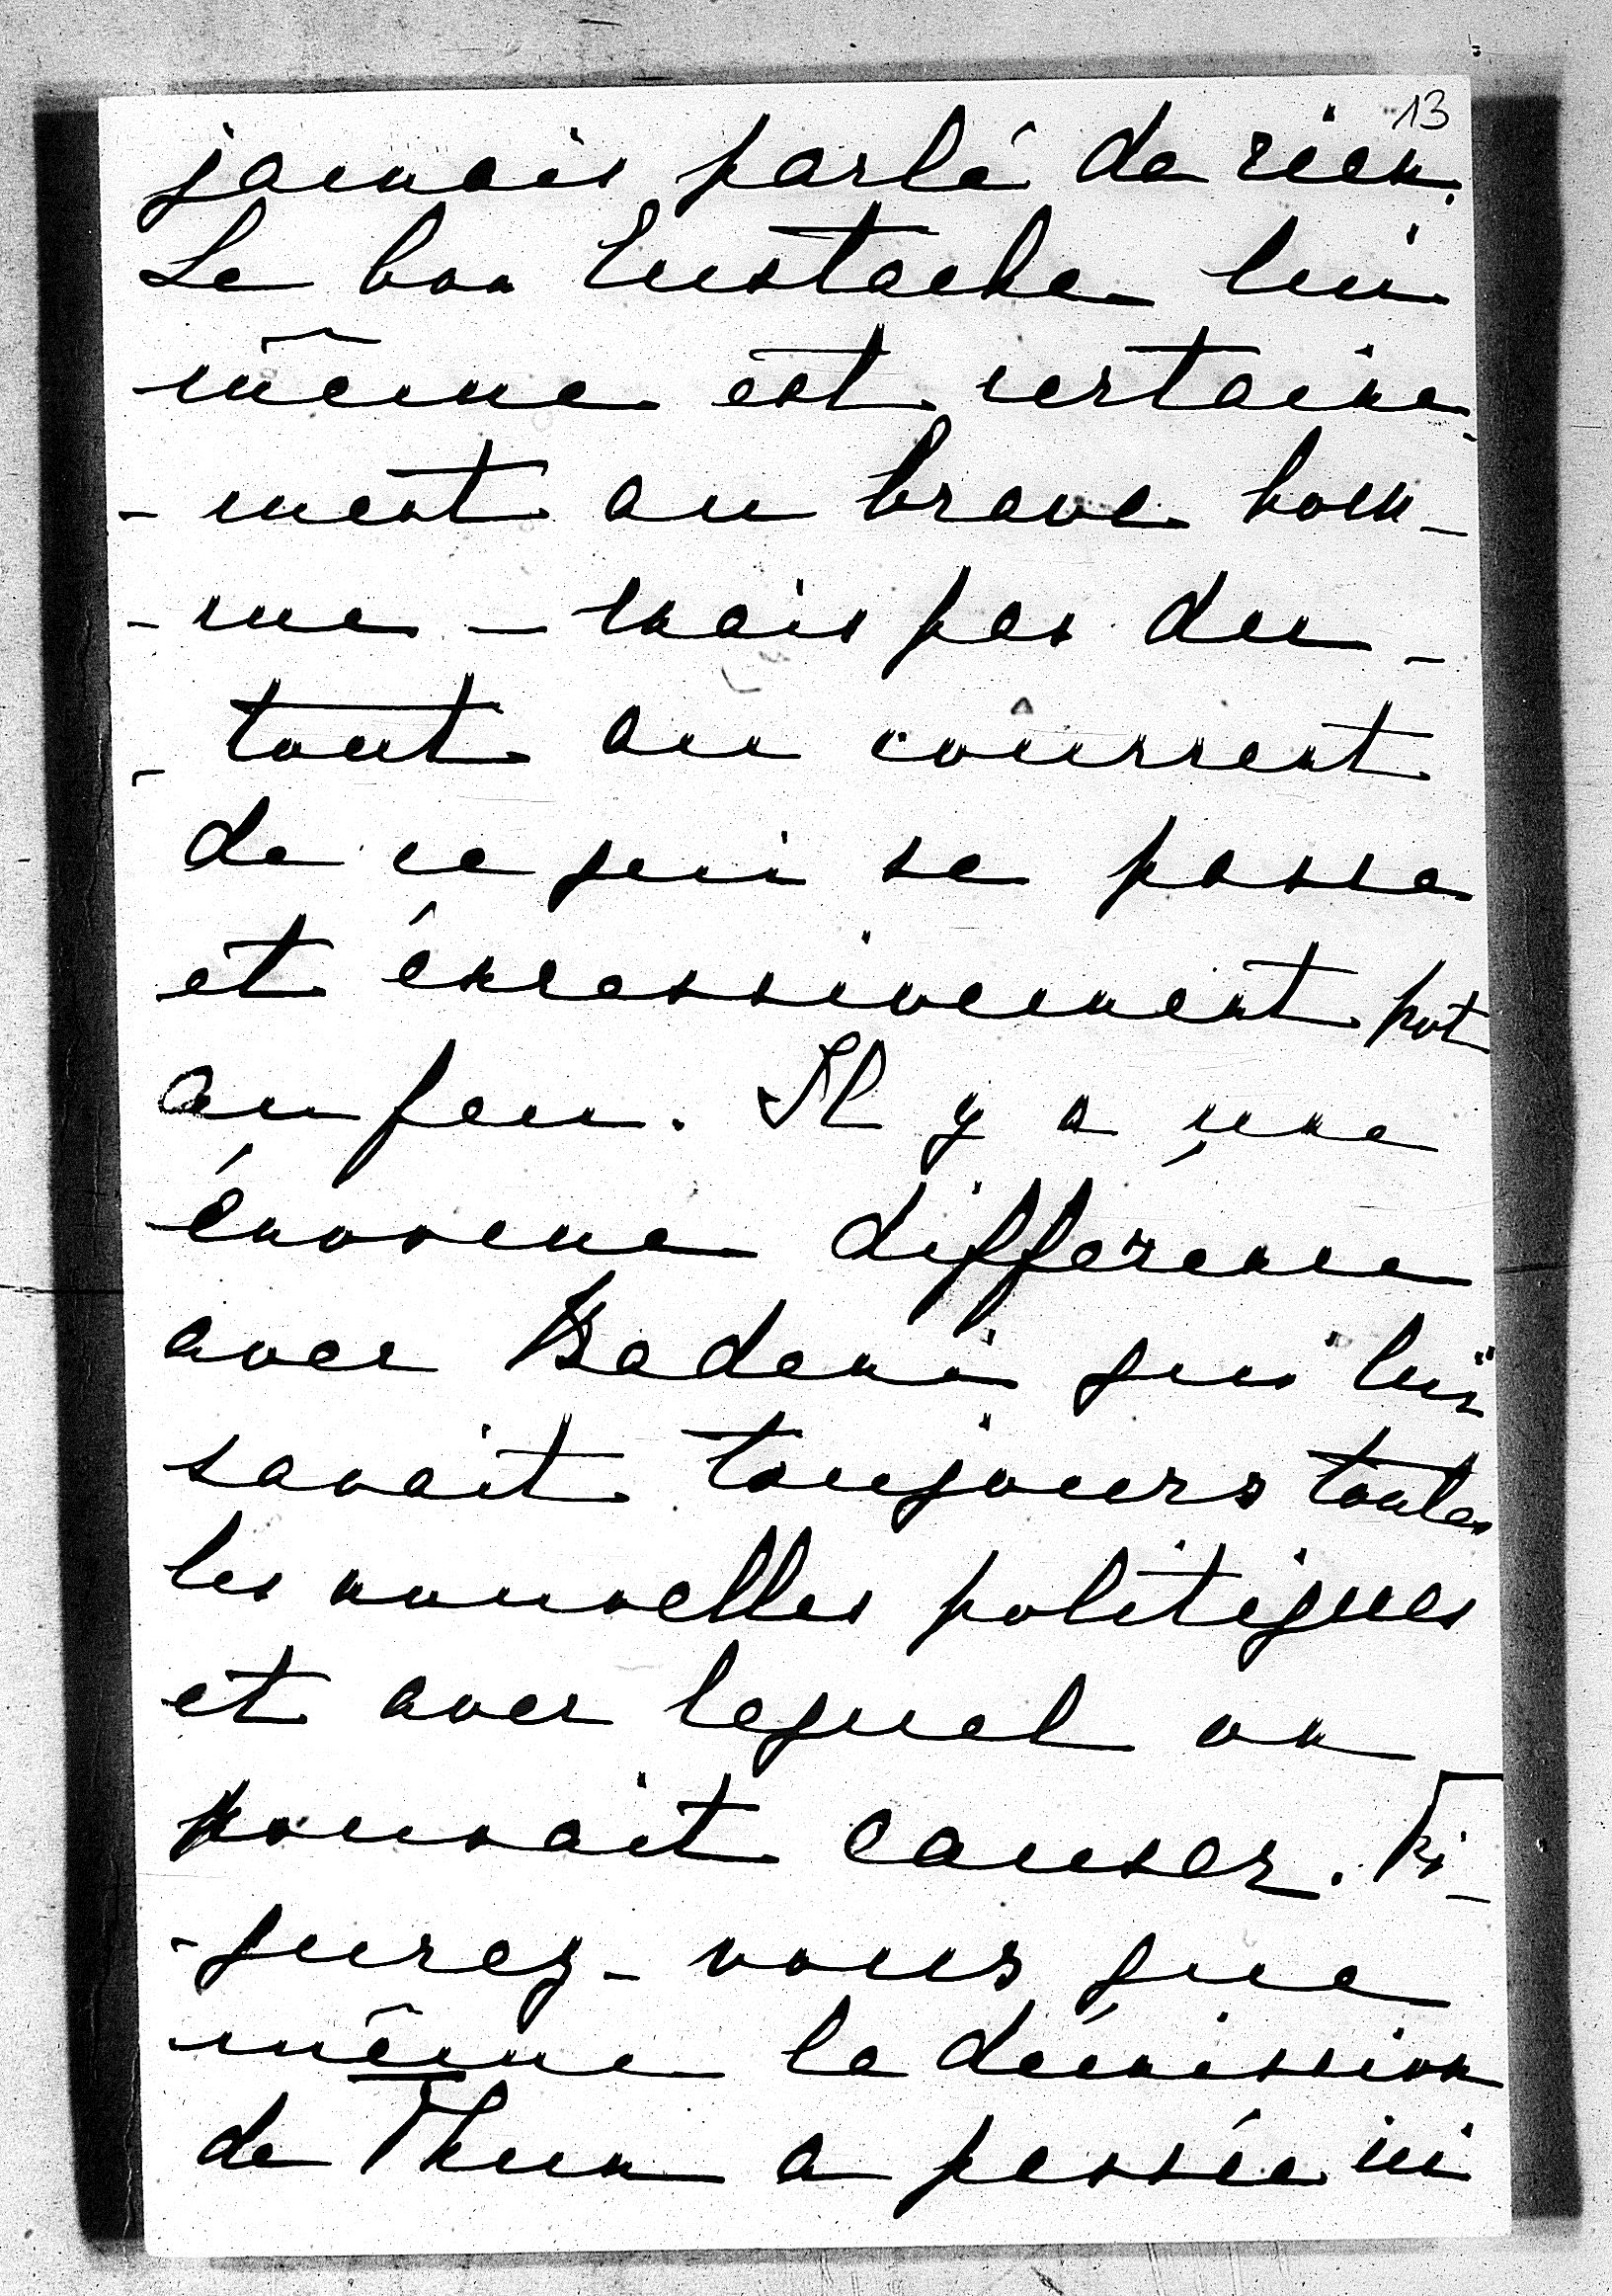 13
jamais parlé de rien.
Le bon Eustache lui
même est certaine-
-ment un brave hom-
-me - mais pas du-
-tout au courrent
de ce qui se passe
et éxcessivement pot
au feu. Il y a une
énorme différence
avec Badeni qui lui
savait toujours toutes
les nouvelles politiques
et avec lequel on
pouvait causer. Fi-
-gurez-vous que
même la démission
de Thun a passée ici